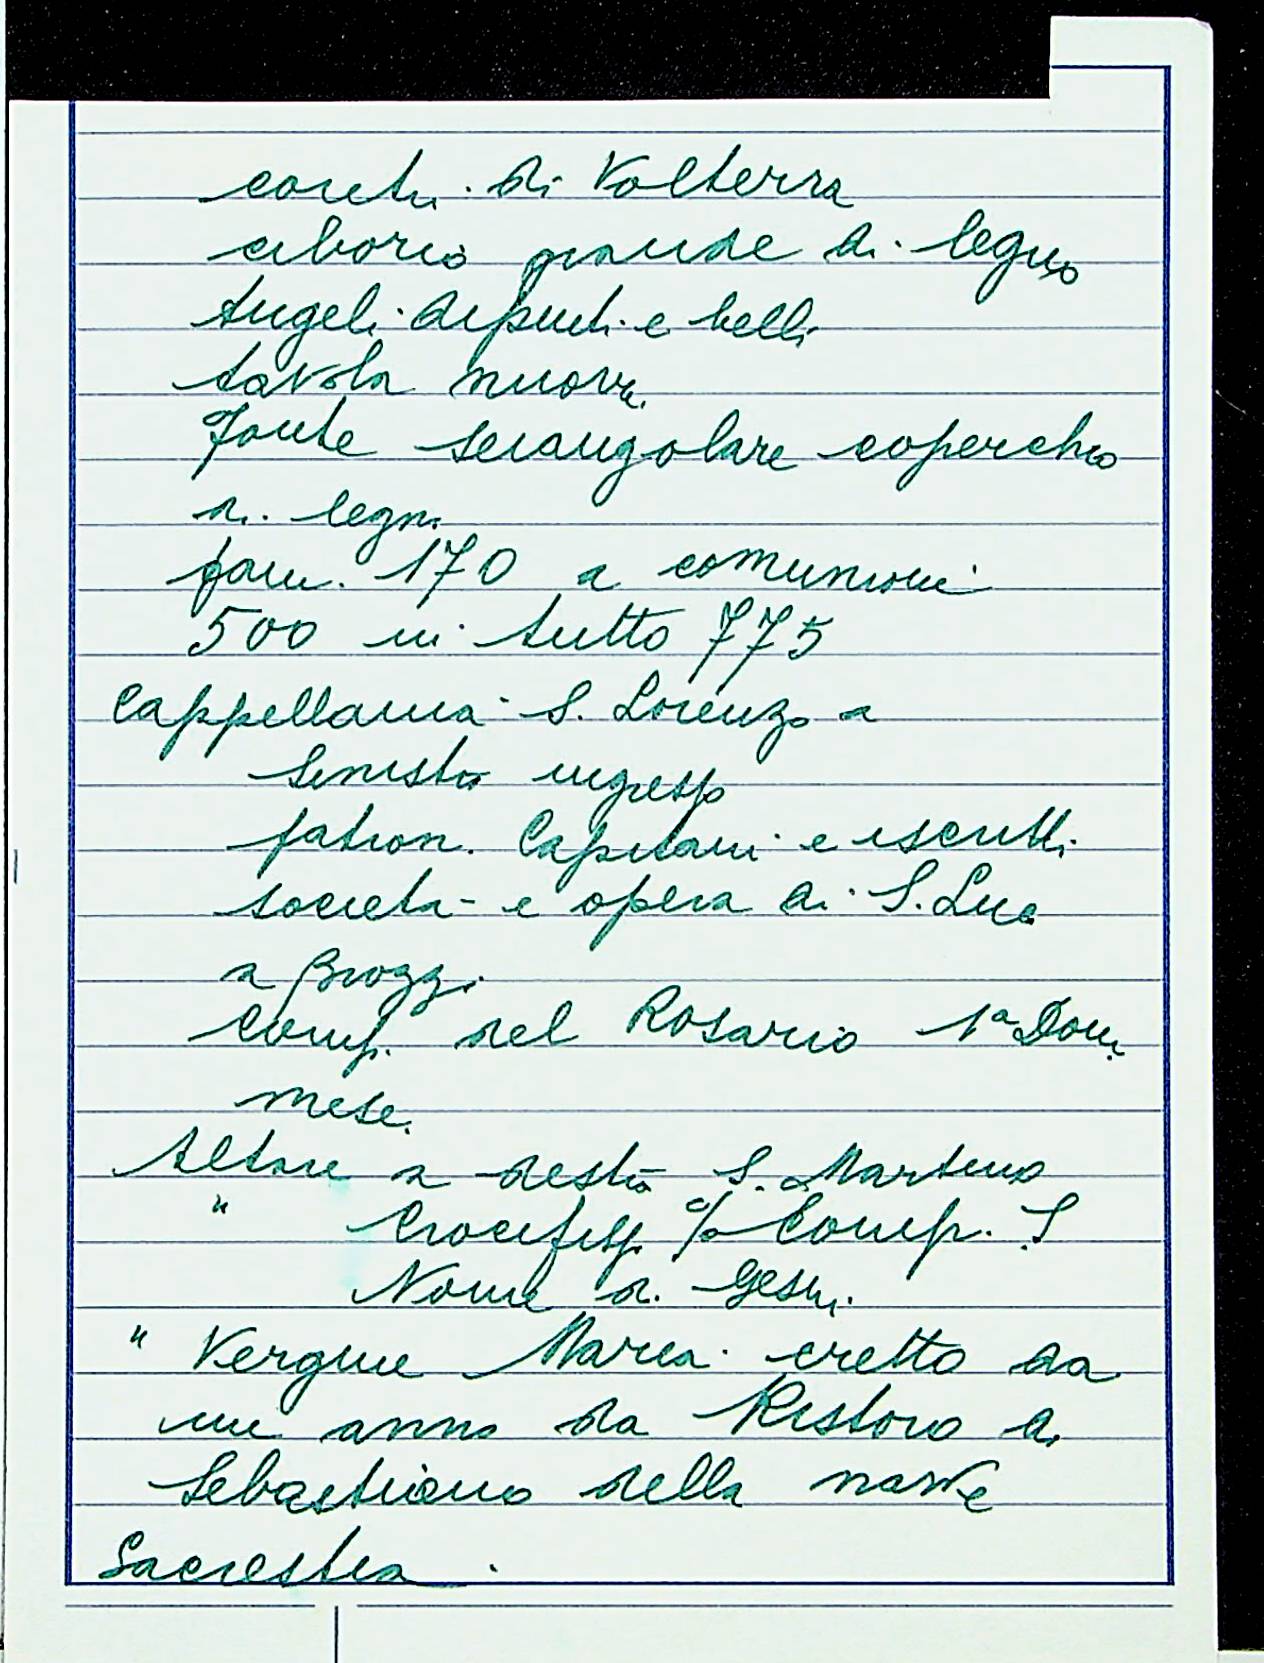 conti di Volterra
ciborio grande di legno
Angeli dipinti e belli
tavola nuova
Fonte sexangolare coperchio
di legn.
fam. 170 a comunione
500 in tutto 775
Cappellania S. Lorenzo a
sinistra ingresso
patron. Capitani e iscritti
società e opera di S. Luca
a Brozzi
Comp. del Rosario 1ª Dom.
mese.
Altare a destra S. Martino
" Crocifisso c/o Comp. S
Nome di Gesù.
" Vergine Maria eretto da
un anno da Ristoro di
Sebastiano della nave
Sacrestia.